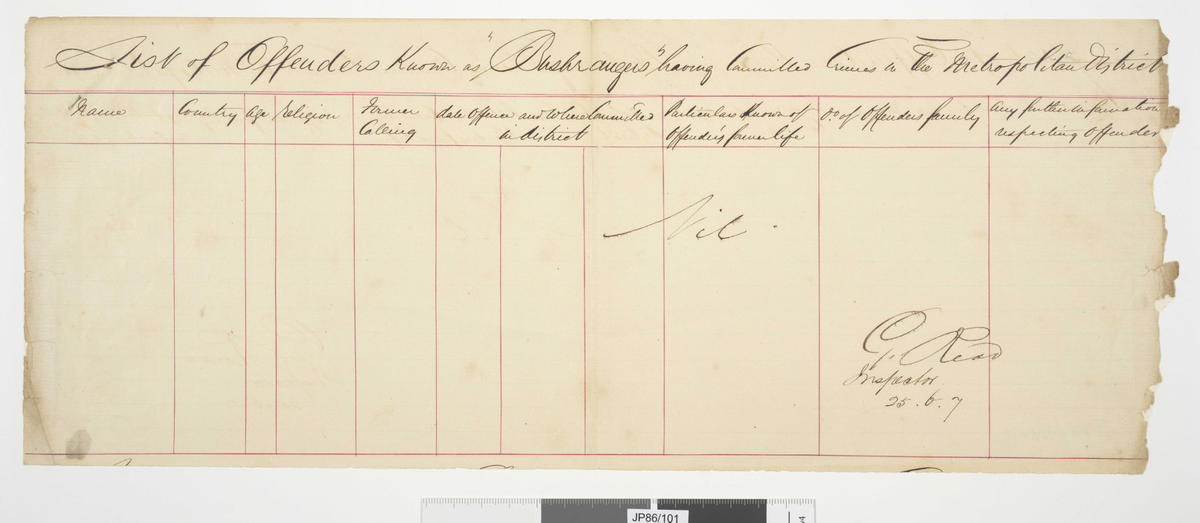 List of Offenders Known as "Bushrangers" having Committed Crimes in The Metropolitan District
Name
Country
age
Religion
Former
Calling
date Offence and Where Committed
in district
Particulars Known of
Offender's former life
Do of Offenders family
any further information
respecting Offender
Nil.
G. Read
Inspector
25.6.7
JP86/101